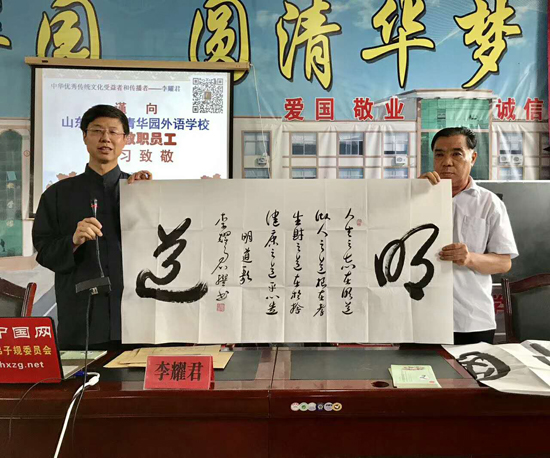 园 圆清华梦
爱国 敬业 诚信
中华优秀传统文化受益者和传播者——李耀君
向
山东 清华园外语学校
教职员工
习致敬
明
人生之志在明道
做人之道根在孝
生财之道在于舍
健康之道平心造
明道歌
李耀君撰书
道
中国网
弟子规委员会
hxzg.net
李耀君